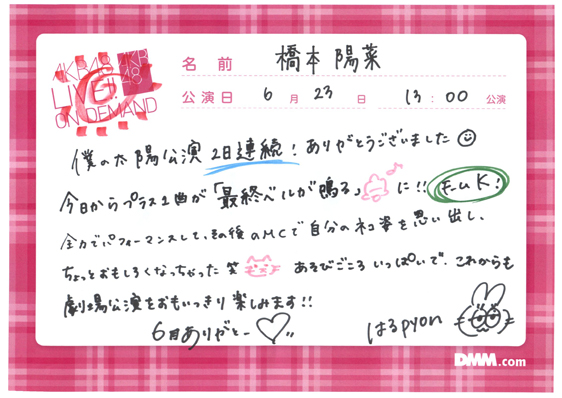 AKB48 HKT48
LIVE!!
ON DEMAND
名前 橋本 陽菜
公演日 6月 23日 13:00 公演
僕の太陽公演 2日連続! ありがとうございました
今日からプラス1曲が「最終ベルが鳴る」に!! チームK!
全力でパフォーマンスして、その後のMCで自分のネコ姿を思い出し、
ちょっとおもしろくなっちゃった 笑 あそびごころ いっぱいで、これからも
劇場公演をおもいっきり楽しみます!!
6月ありがとー
はるpyon
DMM.com